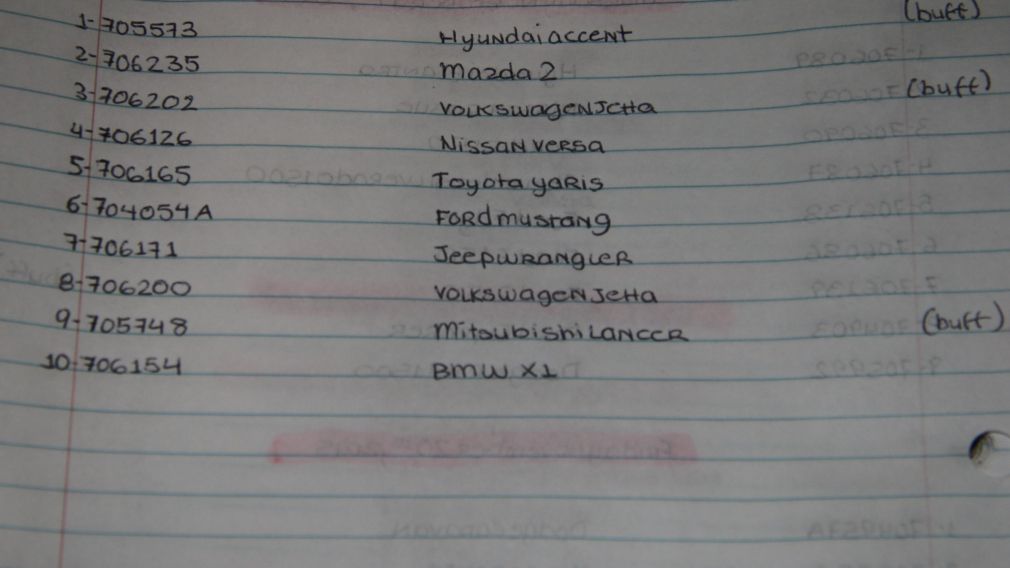 1-705573 Hyundai accent (buff)
2-706235 Mazda 2
3-706202 Volkswagen Jetta (buff)
4-706126 Nissan versa
5-706165 Toyota yaris
6-704054A Ford mustang
7-706171 Jeep wrangler
8-706200 Volkswagen Jetta
9-705748 Mitsubishi Lancer (buff)
10-706154 BMW X1